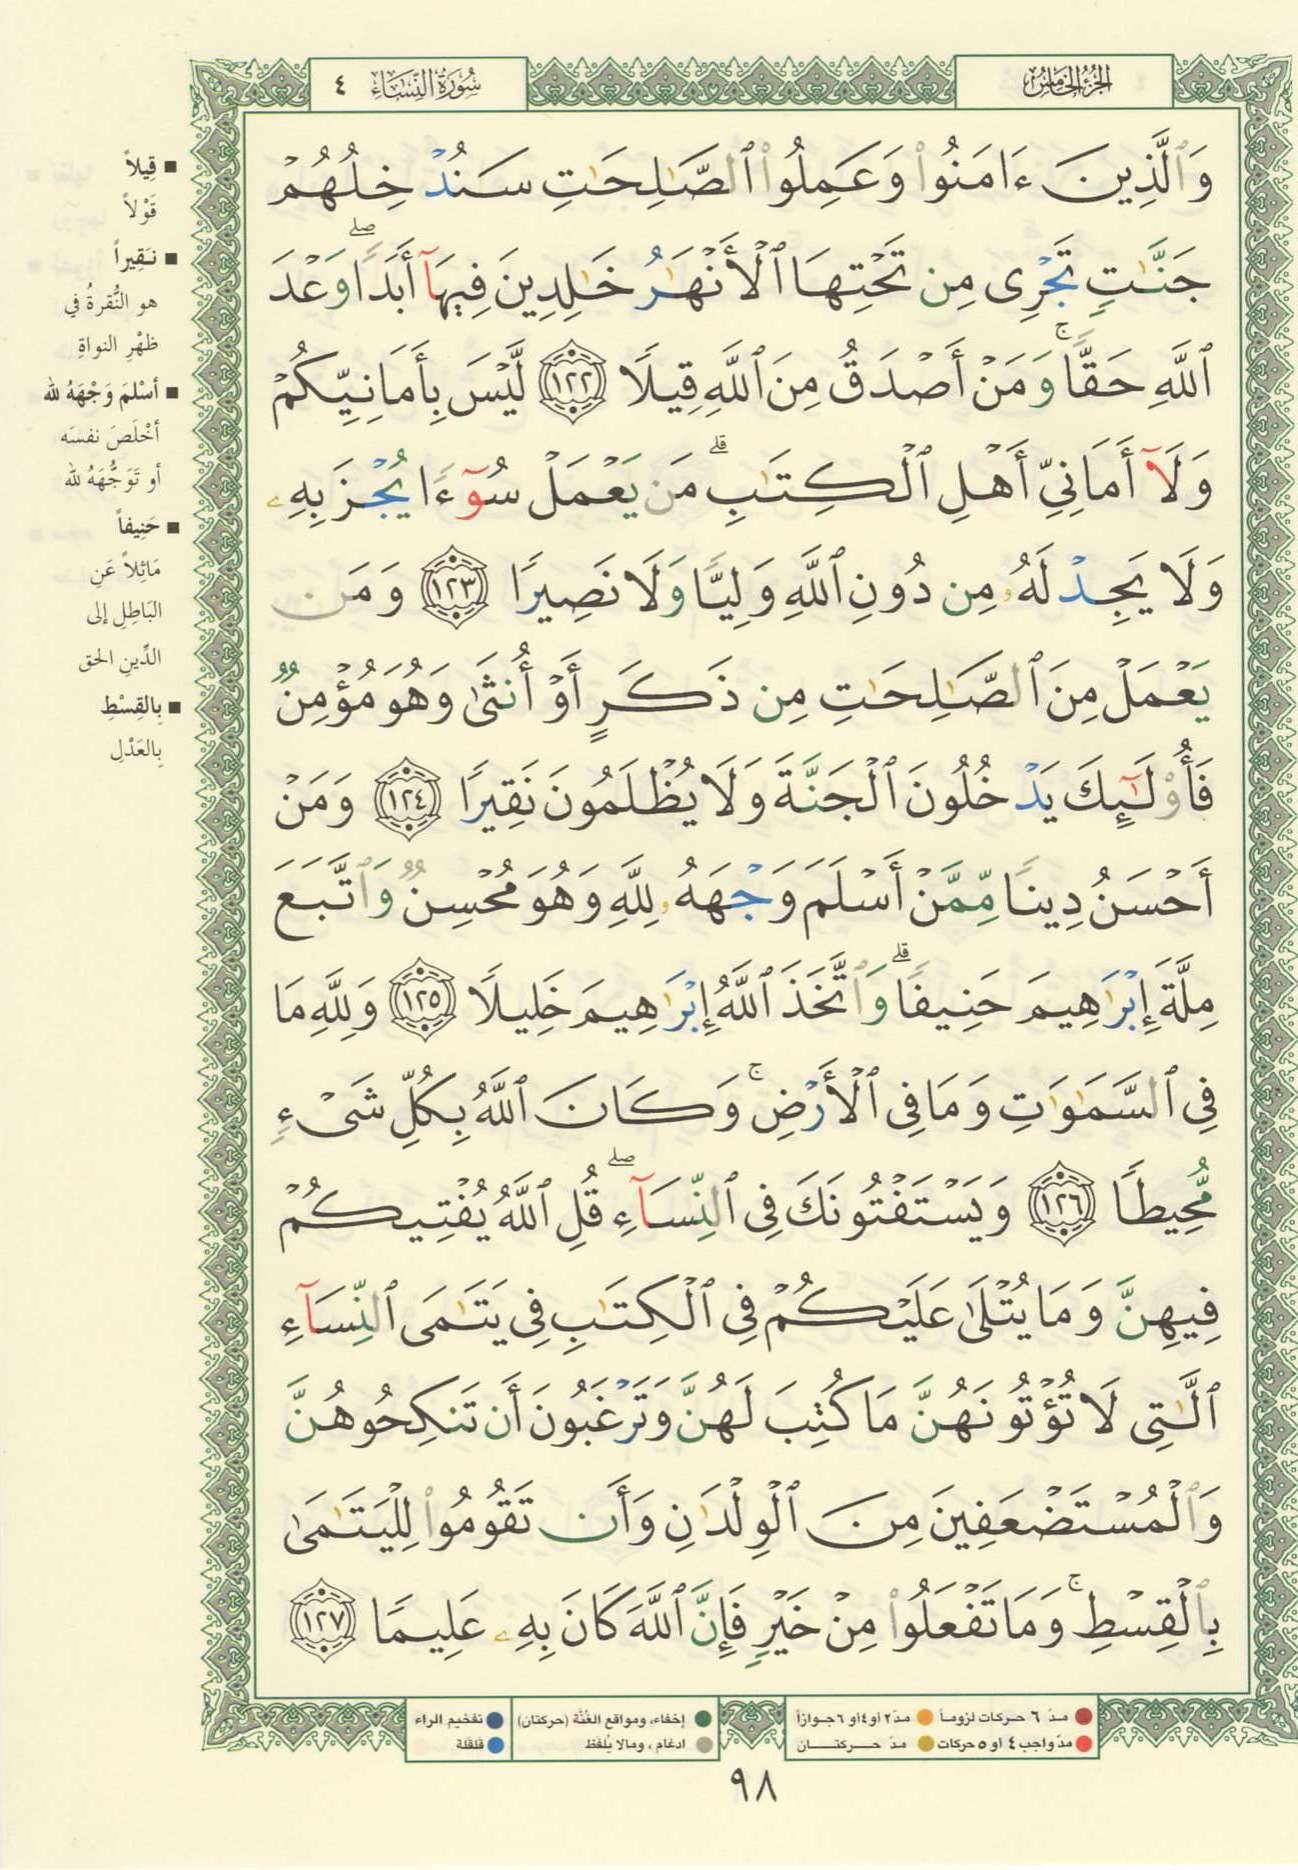 الجزء الخامس
سورة النساء ٤
وَٱلَّذِينَ ءَامَنُوا۟ وَعَمِلُوا۟ ٱلصَّـٰلِحَـٰتِ سَنُدْخِلُهُمْ
جَنَّـٰتٍ تَجْرِى مِن تَحْتِهَا ٱلْأَنْهَـٰرُ خَـٰلِدِينَ فِيهَآ أَبَدًا ۖ وَعْدَ
ٱللَّهِ حَقًّا ۚ وَمَنْ أَصْدَقُ مِنَ ٱللَّهِ قِيلًا ١٢٢ لَّيْسَ بِأَمَانِيِّكُمْ
وَلَآ أَمَانِىِّ أَهْلِ ٱلْكِتَـٰبِ ۗ مَن يَعْمَلْ سُوٓءًا يُجْزَ بِهِۦ
وَلَا يَجِدْ لَهُۥ مِن دُونِ ٱللَّهِ وَلِيًّا وَلَا نَصِيرًا ١٢٣ وَمَن
يَعْمَلْ مِنَ ٱلصَّـٰلِحَـٰتِ مِن ذَكَرٍ أَوْ أُنثَىٰ وَهُوَ مُؤْمِنٌ
فَأُو۟لَـٰٓئِكَ يَدْخُلُونَ ٱلْجَنَّةَ وَلَا يُظْلَمُونَ نَقِيرًا ١٢٤ وَمَنْ
أَحْسَنُ دِينًا مِّمَّنْ أَسْلَمَ وَجْهَهُۥ لِلَّهِ وَهُوَ مُحْسِنٌ وَٱتَّبَعَ
مِلَّةَ إِبْرَٰهِيمَ حَنِيفًا ۗ وَٱتَّخَذَ ٱللَّهُ إِبْرَٰهِيمَ خَلِيلًا ١٢٥ وَلِلَّهِ مَا
فِى ٱلسَّمَـٰوَٰتِ وَمَا فِى ٱلْأَرْضِ ۚ وَكَانَ ٱللَّهُ بِكُلِّ شَىْءٍ
مُّحِيطًا ١٢٦ وَيَسْتَفْتُونَكَ فِى ٱلنِّسَآءِ ۖ قُلِ ٱللَّهُ يُفْتِيكُمْ
فِيهِنَّ وَمَا يُتْلَىٰ عَلَيْكُمْ فِى ٱلْكِتَـٰبِ فِى يَتَـٰمَى ٱلنِّسَآءِ
ٱلَّـٰتِى لَا تُؤْتُونَهُنَّ مَا كُتِبَ لَهُنَّ وَتَرْغَبُونَ أَن تَنكِحُوهُنَّ
وَٱلْمُسْتَضْعَفِينَ مِنَ ٱلْوِلْدَٰنِ وَأَن تَقُومُوا۟ لِلْيَتَـٰمَىٰ
بِٱلْقِسْطِ ۚ وَمَا تَفْعَلُوا۟ مِنْ خَيْرٍ فَإِنَّ ٱللَّهَ كَانَ بِهِۦ عَلِيمًا ١٢٧
■ قِيلاً
قَوْلاً
■ نَقِيراً
هو النُّقرةُ في
ظهْرِ النواةِ
■ أسْلمَ وَجْهَهُ لله
أخْلَصَ نفسَه
أو تَوَجُّهَهُ لله
■ حَنِيفاً
مَائِلاً عَنِ
البَاطِلِ إلى
الدِّينِ الحق
■ بِالقِسْطِ
بِالعَدْلِ
مدّ ٦ حركات لزوماً
مدّ ٢ أو ٤ أو ٦ جوازاً
مدّ واجب ٤ أو ٥ حركات
مدّ حركتان
إخفاء، ومواقع الغُنَّة (حركتان)
ادغام ، ومالا يُلفَظ
تفخيم الراء
قلقلة
٩٨